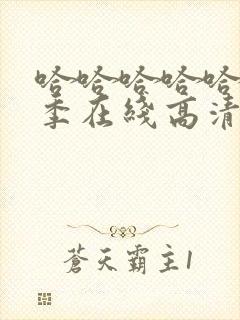 哈哈哈哈哈
季在綫高清
蒼天霸主1